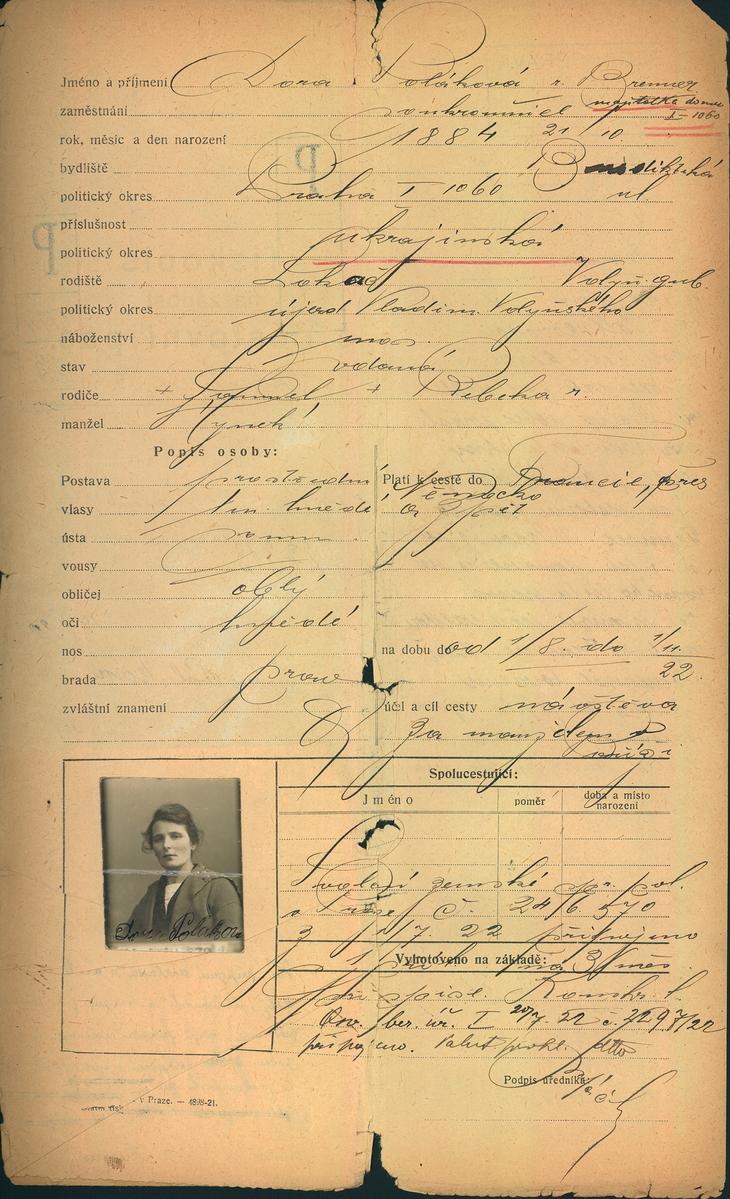 Jméno a příjmení Dora Poláková r. Brenner
zaměstnání soukromnice majitelka domu
I-1060
rok, měsíc a den narození 1884 21/10.
bydliště Benediktská
politický okres Praha I 1060 ul
příslušnost
politický okres ukrajinská
rodiště Lokač Volyň. gub.
politický okres újezd Vladim. Volyňského
náboženství mos.
stav vdaná
rodiče + Samuel + Rebeka r.
manžel Hynek
Popis osoby:
Postava prostřední Platí k cestě do Francie, přes
vlasy tm. hnědé Německo
a zpět
ústa
vousy
obličej oblý
oči hnědé
nos na dobu do od 1/8. do 1/11.
22.
brada prav
zvláštní znamení účel a cíl cesty návštěva
za manželem
Spolucestující:
Jméno poměr doba a místo narození
Svolení zemské sp. pol.
v Praze č. 24/6. 570
z 1/7. 22 připojeno
Vyhotoveno na základě: 3 měs.
při spise. Konskr. l.
Osv. ber. úř. I 20/7. 22 č. 2297/22
připojeno. Valut. prohl. dtto
Podpis úředníka:
Dora Poláková
v Praze. — 4898-21.